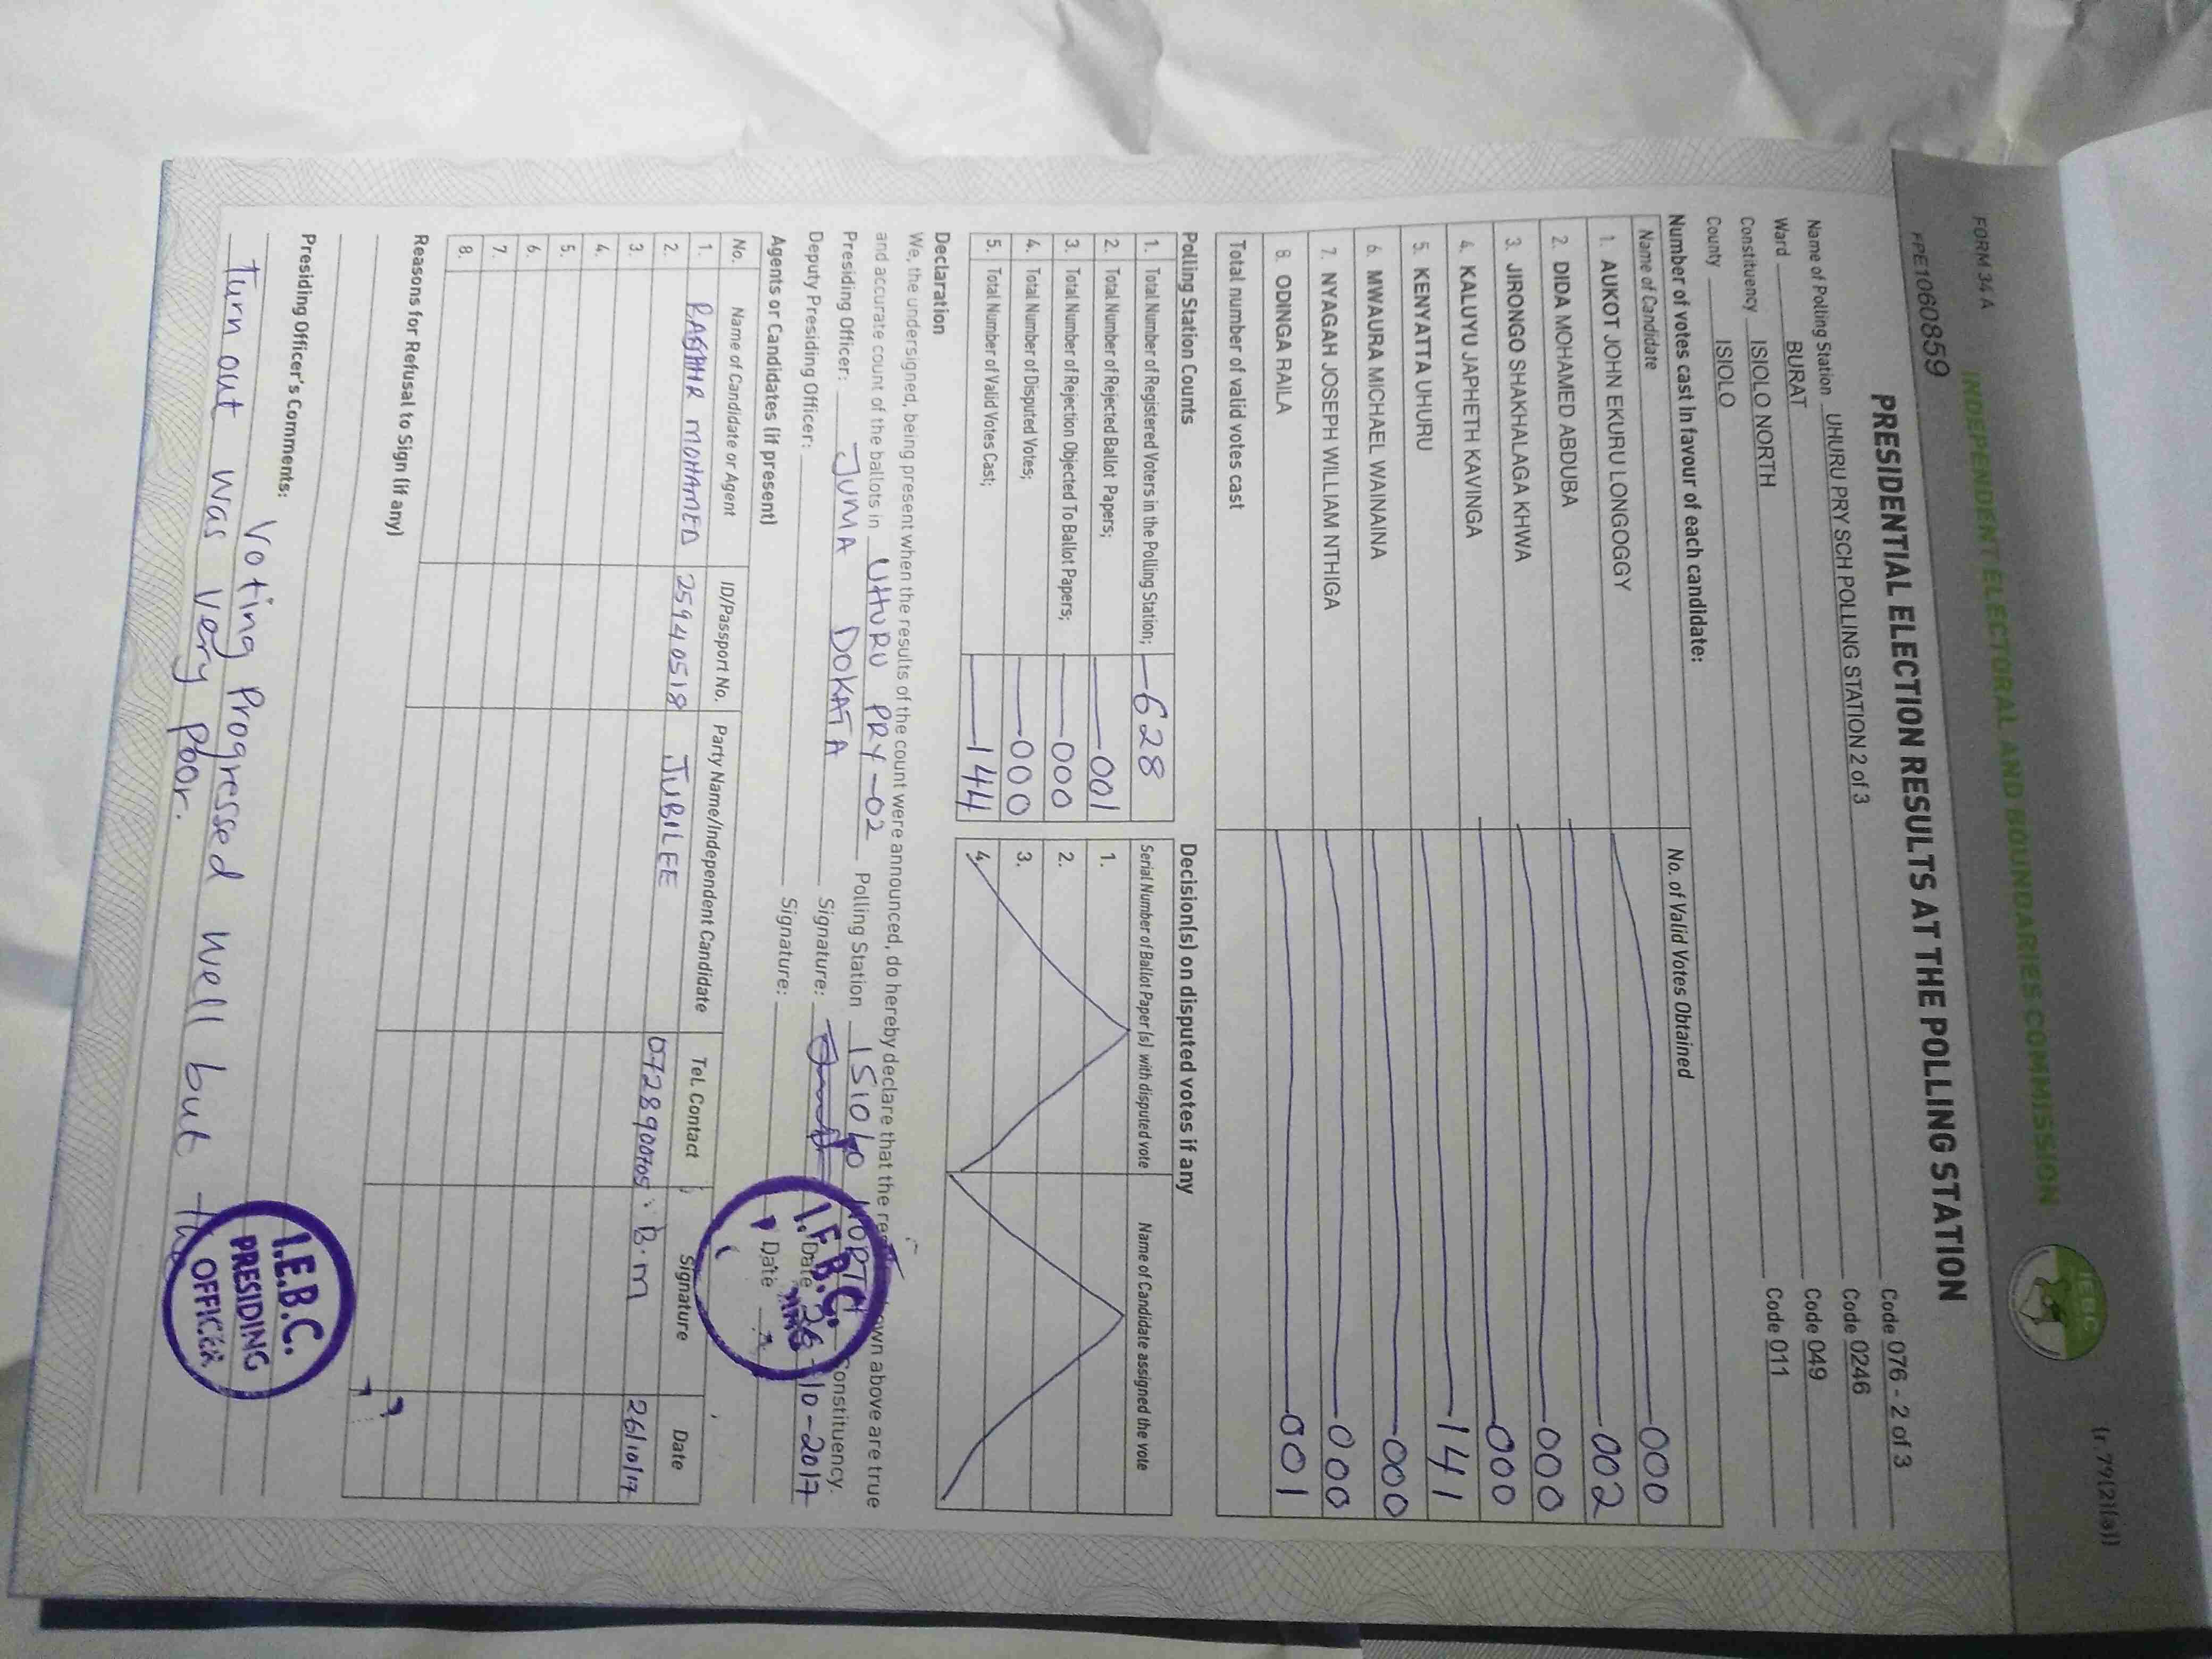 FORM 34 A
(r.79(2)(a))
INDEPENDENT ELECTORAL AND BOUNDARIES COMMISSION
IEBC
PPE1060859
PRESIDENTIAL ELECTION RESULTS AT THE POLLING STATION
Name of Polling Station UHURU PRY SCH POLLING STATION 2 of 3 Code 076 - 2 of 3
Ward BURAT Code 0246
Constituency ISIOLO NORTH Code 049
County ISIOLO Code 011
Number of votes cast in favour of each candidate:
Name of Candidate No. of Valid Votes Obtained
1. AUKOT JOHN EKURU LONGOGGY 000
2. DIDA MOHAMED ABDUBA 002
3. JIRONGO SHAKHALAGA KHWA 000
4. KALUYU JAPHETH KAVINGA 000
5. KENYATTA UHURU 141
6. MWAURA MICHAEL WAINAINA 000
7. NYAGAH JOSEPH WILLIAM NTHIGA 000
8. ODINGA RAILA 001
Total number of valid votes cast
Polling Station Counts
1. Total Number of Registered Voters in the Polling Station; 628
2. Total Number of Rejected Ballot Papers; 001
3. Total Number of Rejection Objected To Ballot Papers; 000
4. Total Number of Disputed Votes; 000
5. Total Number of Valid Votes Cast; 144
Decision(s) on disputed votes if any
Serial Number of Ballot Paper (s) with disputed vote Name of Candidate assigned the vote
1.
2.
3.
4.
Declaration
We, the undersigned, being present when the results of the count were announced, do hereby declare that the shown above are true
and accurate count of the ballots in UHURU PRY -02 Polling Station ISIOLO Constituency.
Presiding Officer: JUMA DOKATA Signature: Date 26-10-2017
Deputy Presiding Officer: Signature: Date
I.E.B.C.
Agents or Candidates (if present)
No. Name of Candidate or Agent ID/Passport No. Party Name/Independent Candidate Tel. Contact Signature Date
1. MOHAMED 25940518 JUBILEE 0728900705 B.M 26/10/17
2.
3.
4.
5.
6.
7.
8.
Reasons for Refusal to Sign (if any)
Presiding Officer's Comments: Voting Progressed well but the
Turn out was very poor.
I.E.B.C.
PRESIDING
OFFICER